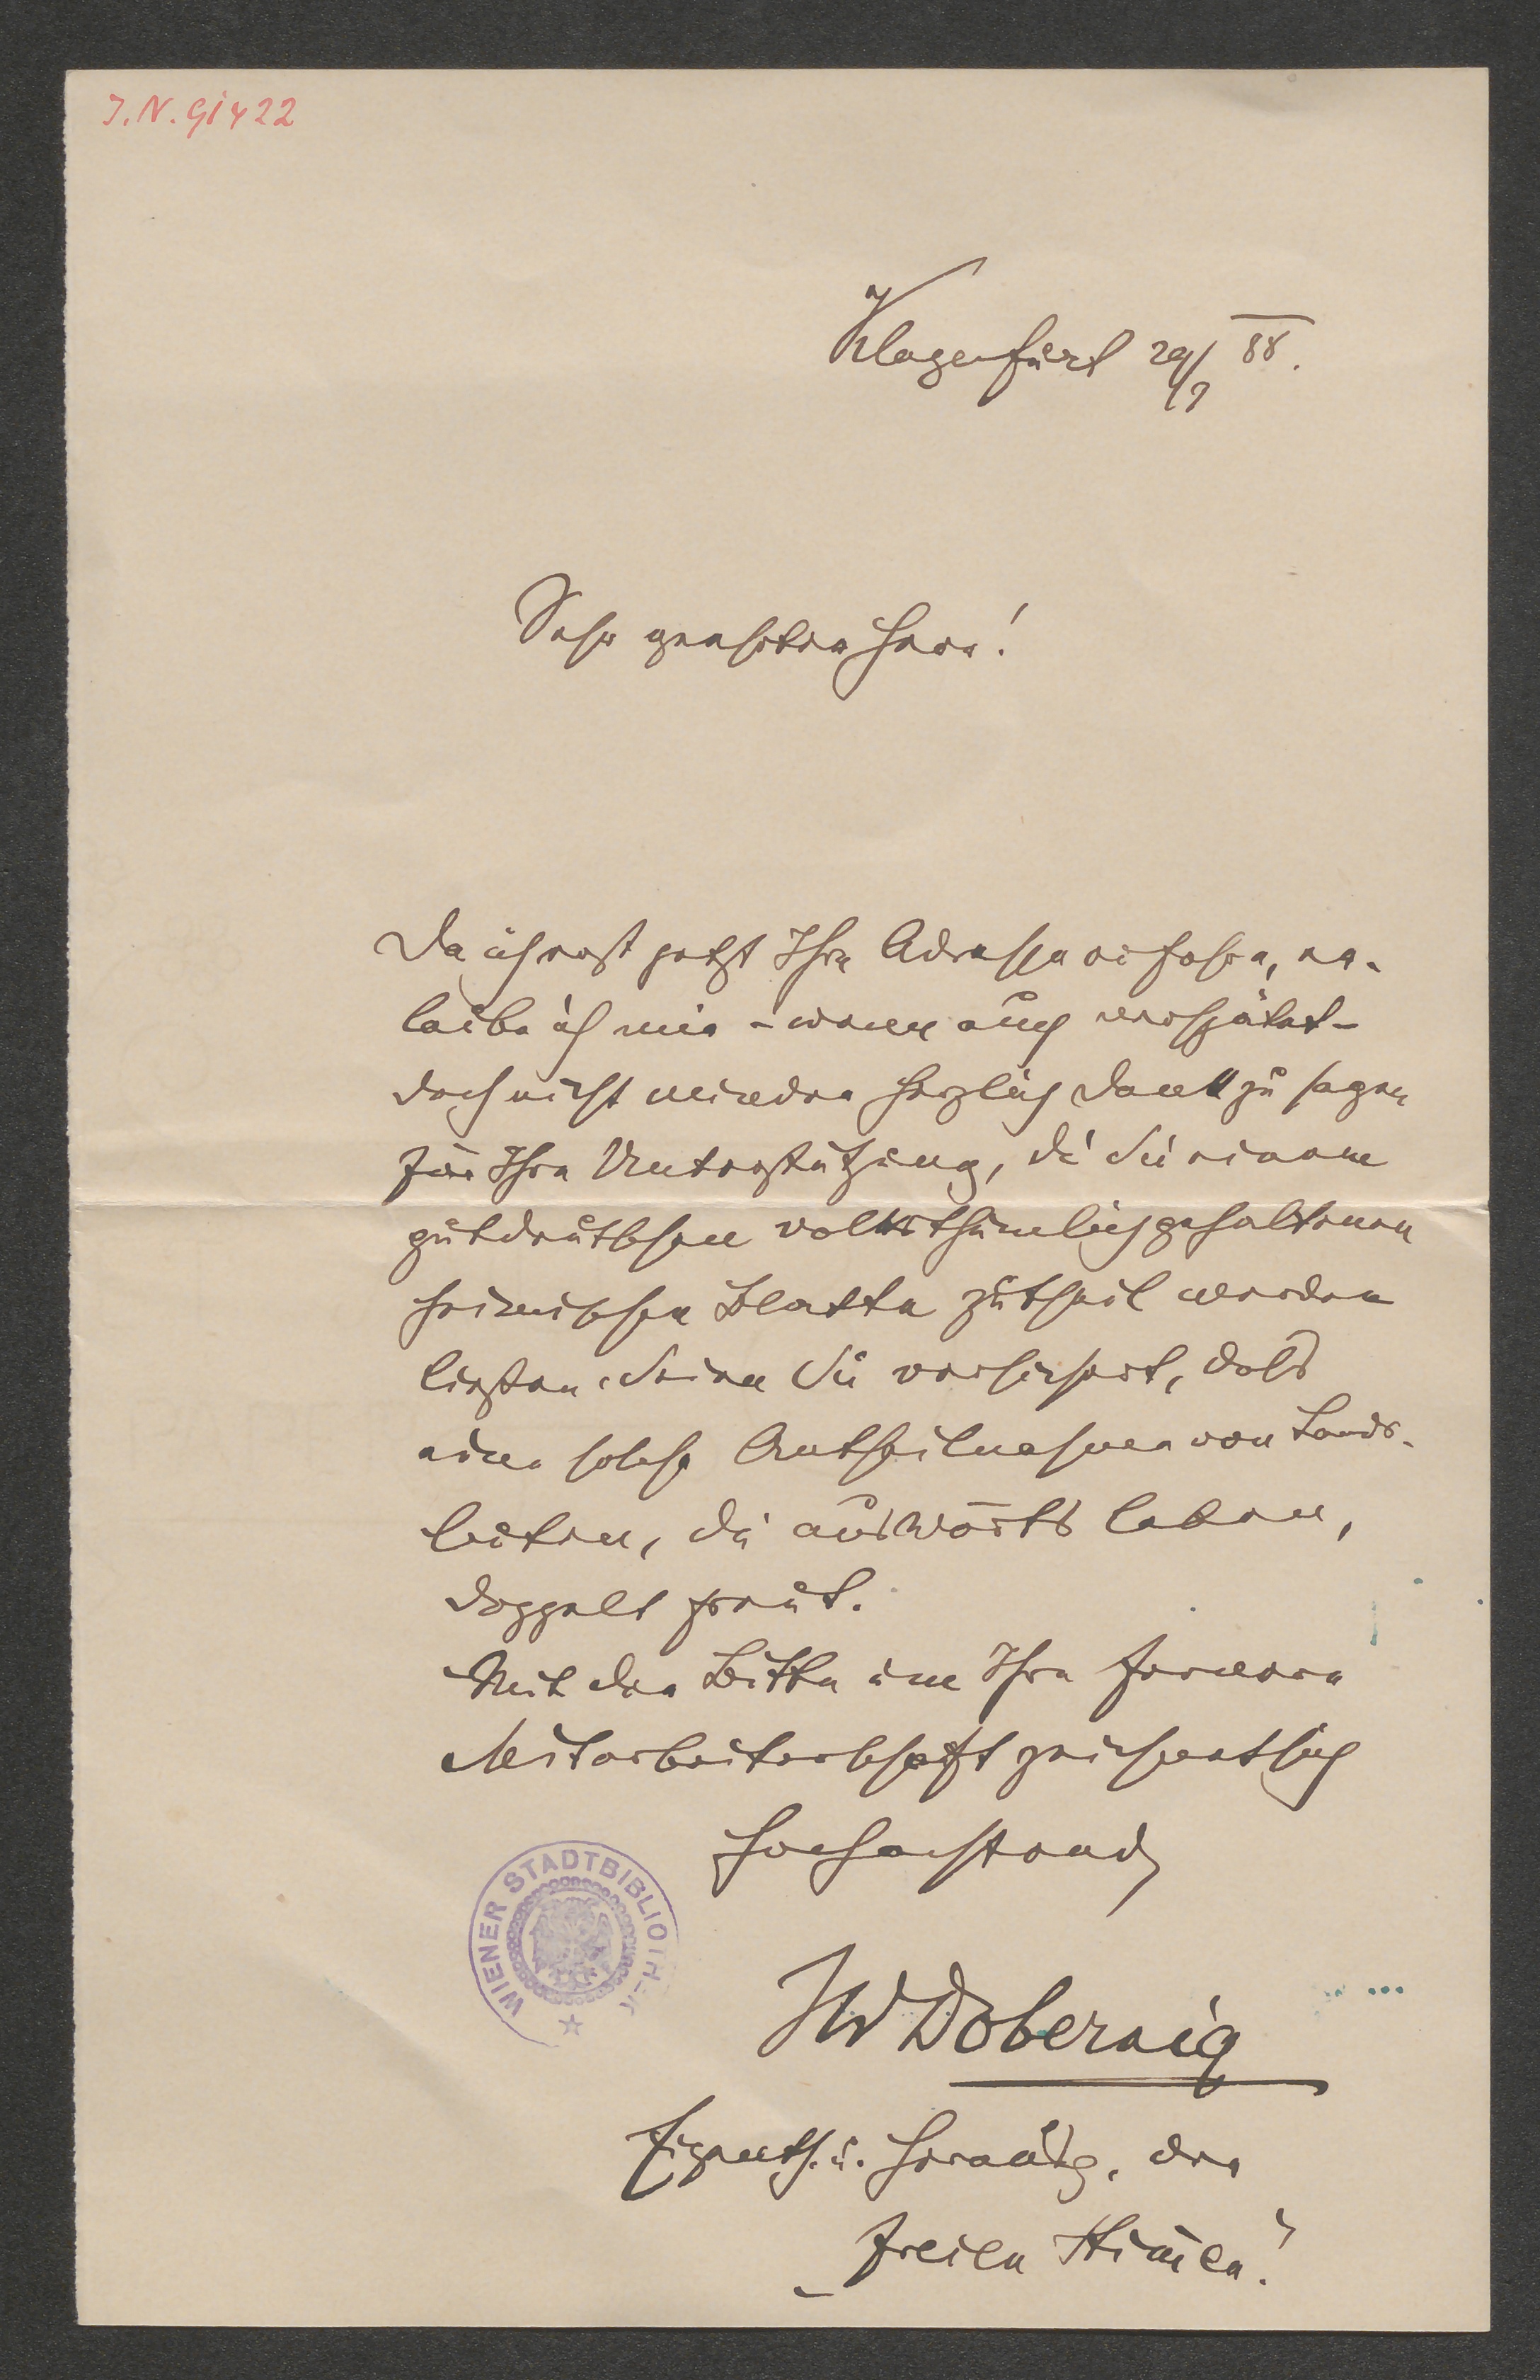 J. N. 91422
Klagenfurt 29/7 88.
Sehr geehrter Herr!
Da ich erst jetzt Ihre Adresse erfahre, er-
laube ich mir – wenn auch verspätet –
doch nicht minder herzlich Dank zu sagen
für Ihre Unterstützung, die Sie einem
gutdeutschen volksthümlich gehaltenen
heimischen Blatte zutheil werden
ließen. Seien Sie versichert, dass
eine solche Antheilnahme von Lands-
leuten, die auswärts leben,
doppelt freut.
Mit der Bitte um Ihre fernere
Mitarbeiterschaft zeichnet sich
hochachtend
JW Dobernig
Eigenth. u. Herausg. der
„Freien Stimmen“.
WIENER STADTBIBLIOTHEK